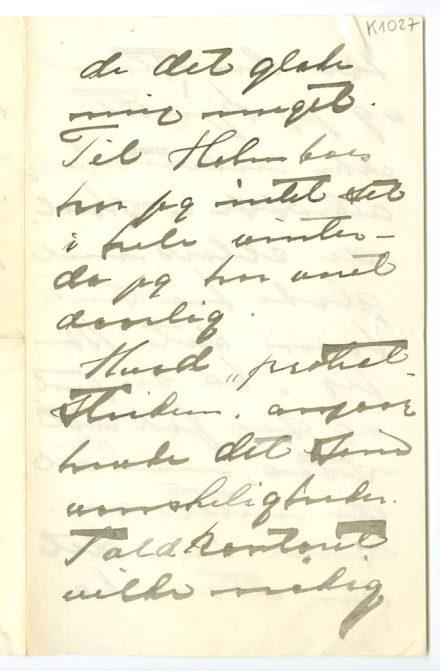 K1027
de det glade
mig meget.
Til Holmboes
har jeg intet set
i hele vinter –
da jeg har vært
daarlig.
Hvad „protret-
striden" angaar
havde det sine
vanskeligheder.
Toldkontoret
vilde nødig